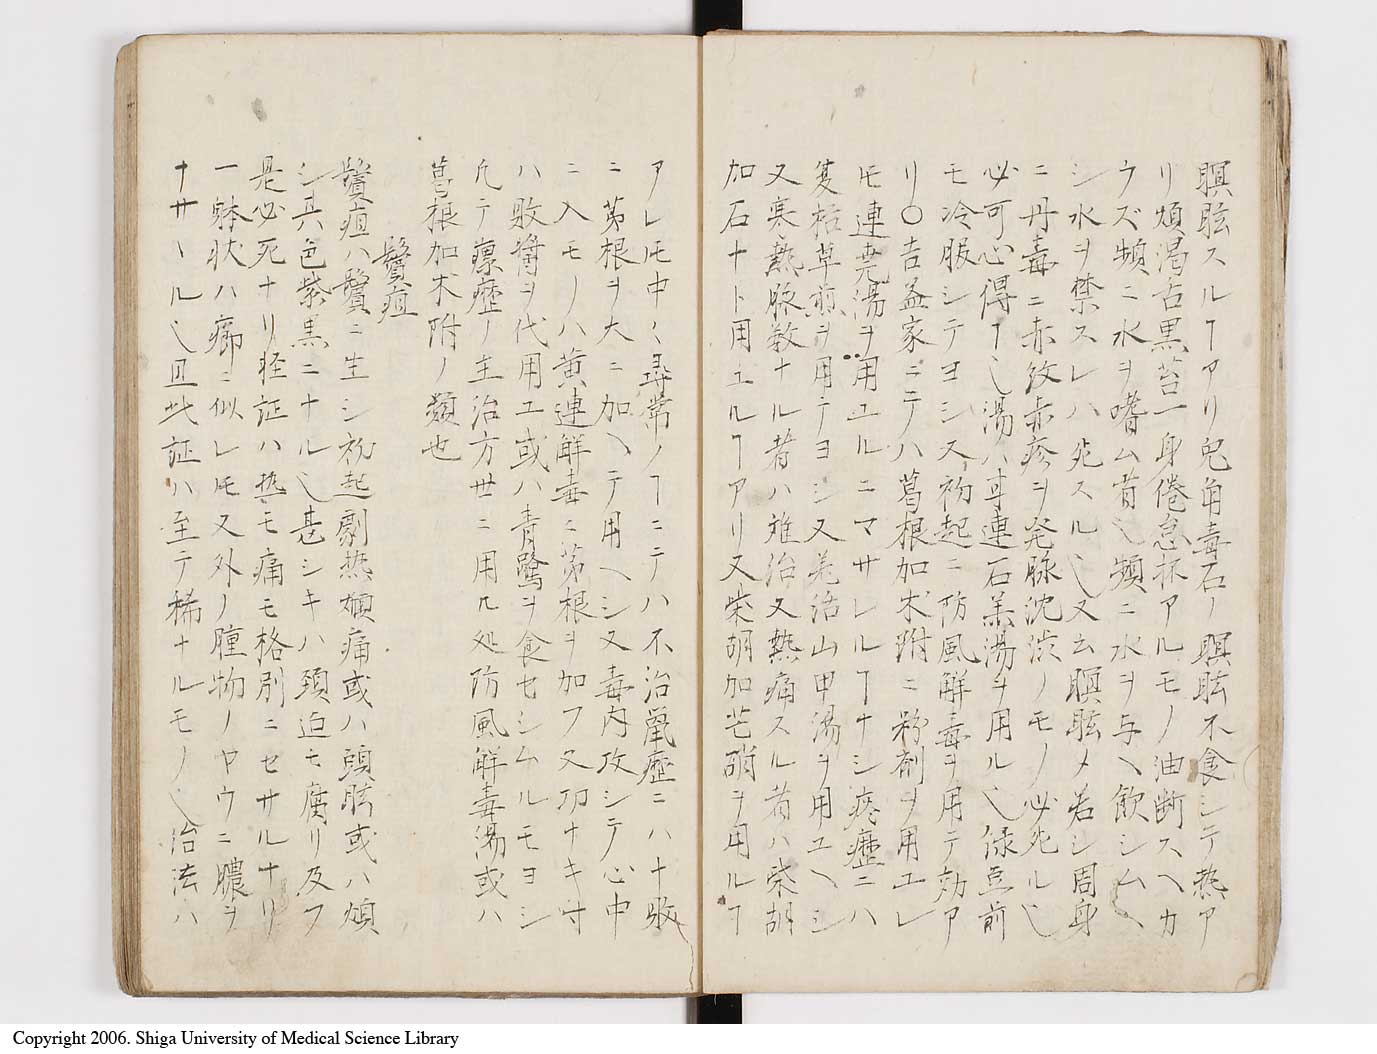 瞑眩スルヿアリ兒角毒石ノ瞑眩不食シテ热ア
リ煩渇舌黒苔一身倦怠抔アルモノ油断スヘカ
ウズ頻ニ水ヲ嗜ム旨〆頻ニ水ヲ与ヘ飲シムヘ
シ水ヲ禁スレハ死スル〆又云瞑眩メ若シ周身
ニ丹毒ニ赤紋赤疹ヲ発脉沈渋ノモノ必死ル〆
必可心得ヿ〆湯ハ連石羔湯ヲ用ル〆緑豆前
モ冷服シテヨシス初起ニ防風解毒ヲ用テ効ア
リ〇吉益家ニテハ葛根加朮附ニ粉剤ヲ用ユレ
𪜈連堯湯ヲ用ユルニマサレルヿナシ瘰癧ニハ
夏枯草煎ヲ用テヨシ又羌活山甲湯ヲ用ユヘシ
又寒熱脉数ナル者ハ難治又熱痛スル者ハ柴胡
加石ナト用ユルヿアリ又柴胡加芒硝ヲ用ルヿ
アレ𪜈中〻尋常ノヿニテハ不治鼠癧ニハ十敗
ニ茅根ヲ大ニ加ヘテ用ヘシ又毒内攻シテ心中
ニ入モノハ黄連解毒ニ茅根ヲ加フ又功ナキ寸
ハ敗醤ヲ代用エ或ハ青鷺ヲ食セシムルモヨシ
凡テ瘰癧ノ主治方世ニ用ル処防風解毒湯或ハ
葛根加朮附ノ類也
鬢疽
鬢疽ハ鬢ニ生シ初起劇热頭痛或ハ頭眩或ハ煩
シ其色紫黒ニナル〆甚シキハ頚迫モ腐リ及フ
是必死ナリ軽証ハ热モ痛モ格別ニセサルナリ
一躰状ハ癤ニ似レ𪜈又外ノ腫物ノヤウニ膿ヲ
ナサヽル〆且此証ハ至テ稀ナルモノ〆治法ハ
Copyright 2006. Shiga University of Medical Science Library